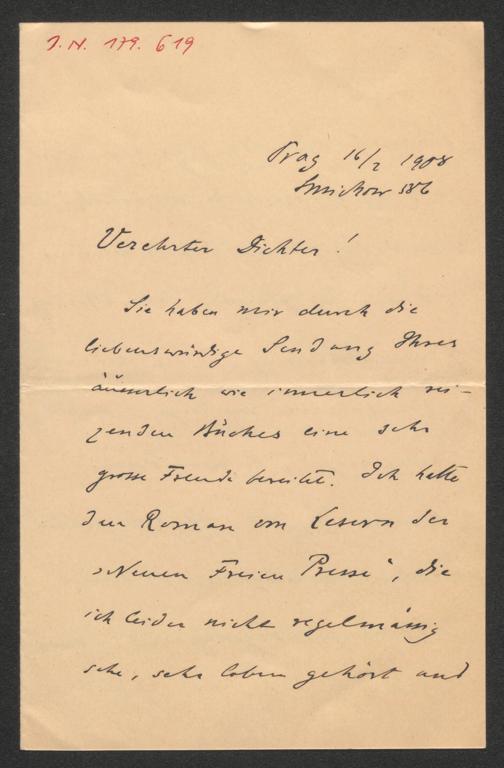 J. N. 179. 619
Prag 16/2 1908
Smichow 586
Verehrter Dichter!
Sie haben mir durch die
liebenswürdige Sendung Ihres
äusserlich wie innerlich rei-
zenden Buches eine sehr
grosse Freude bereitet. Ich hatte
den Roman von Lesern der
„Neuen Freien Presse", die
ich leider nicht regelmässig
sehe, sehr loben gehört und